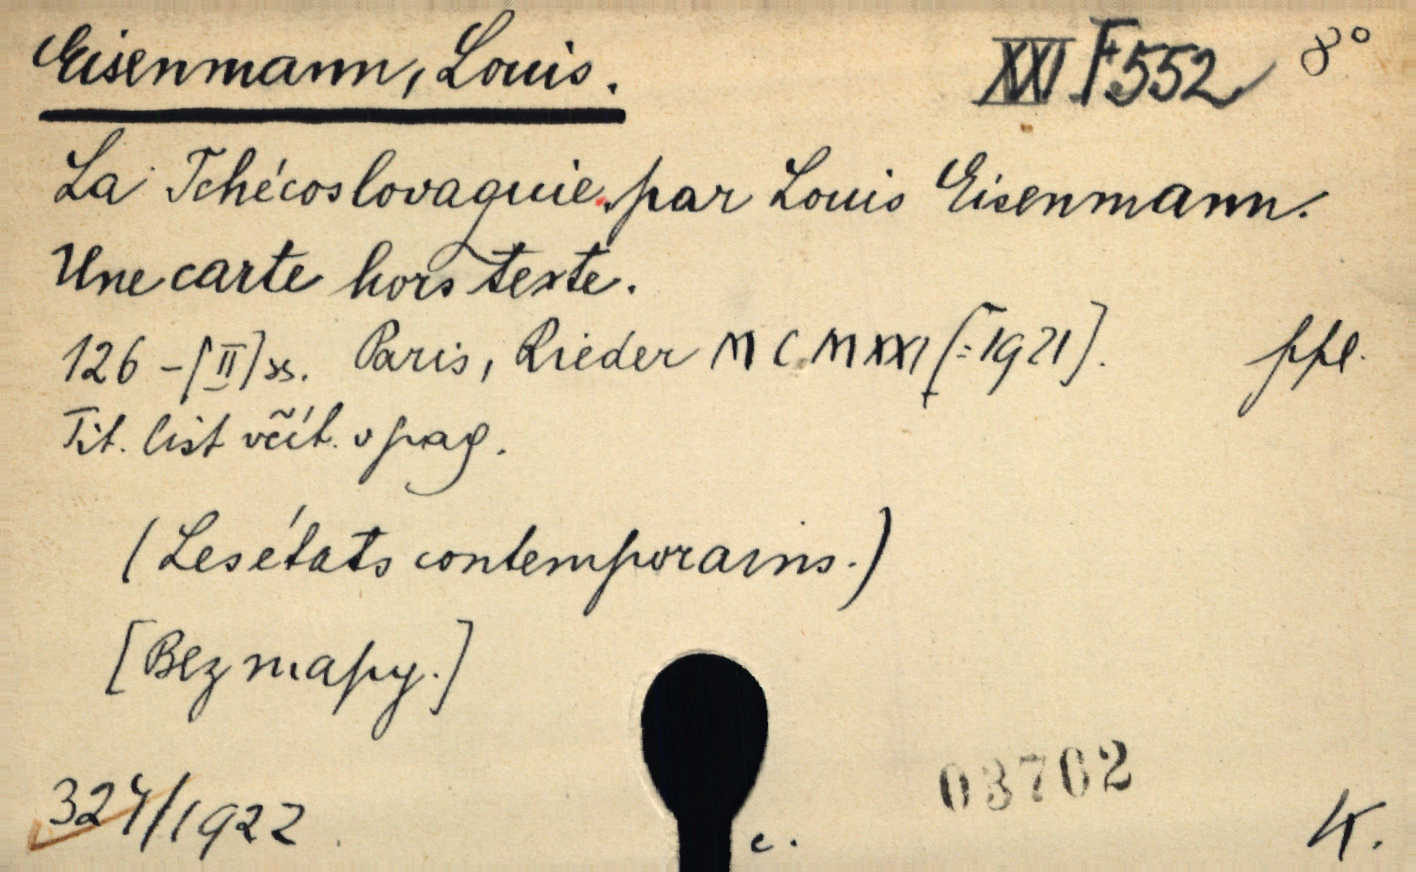 Eisenmann, Louis. XXI F 552 8°
La Tchécoslovaquie. par Louis Eisenmann.
Une carte hors texte.
126 - [II] ss. Paris, Rieder MCMXXI [=1921]. ppl.
Tit. list včít. v pag.
(Les états contemporains.)
[Bez mapy.]
324/1922 03762
c. K.